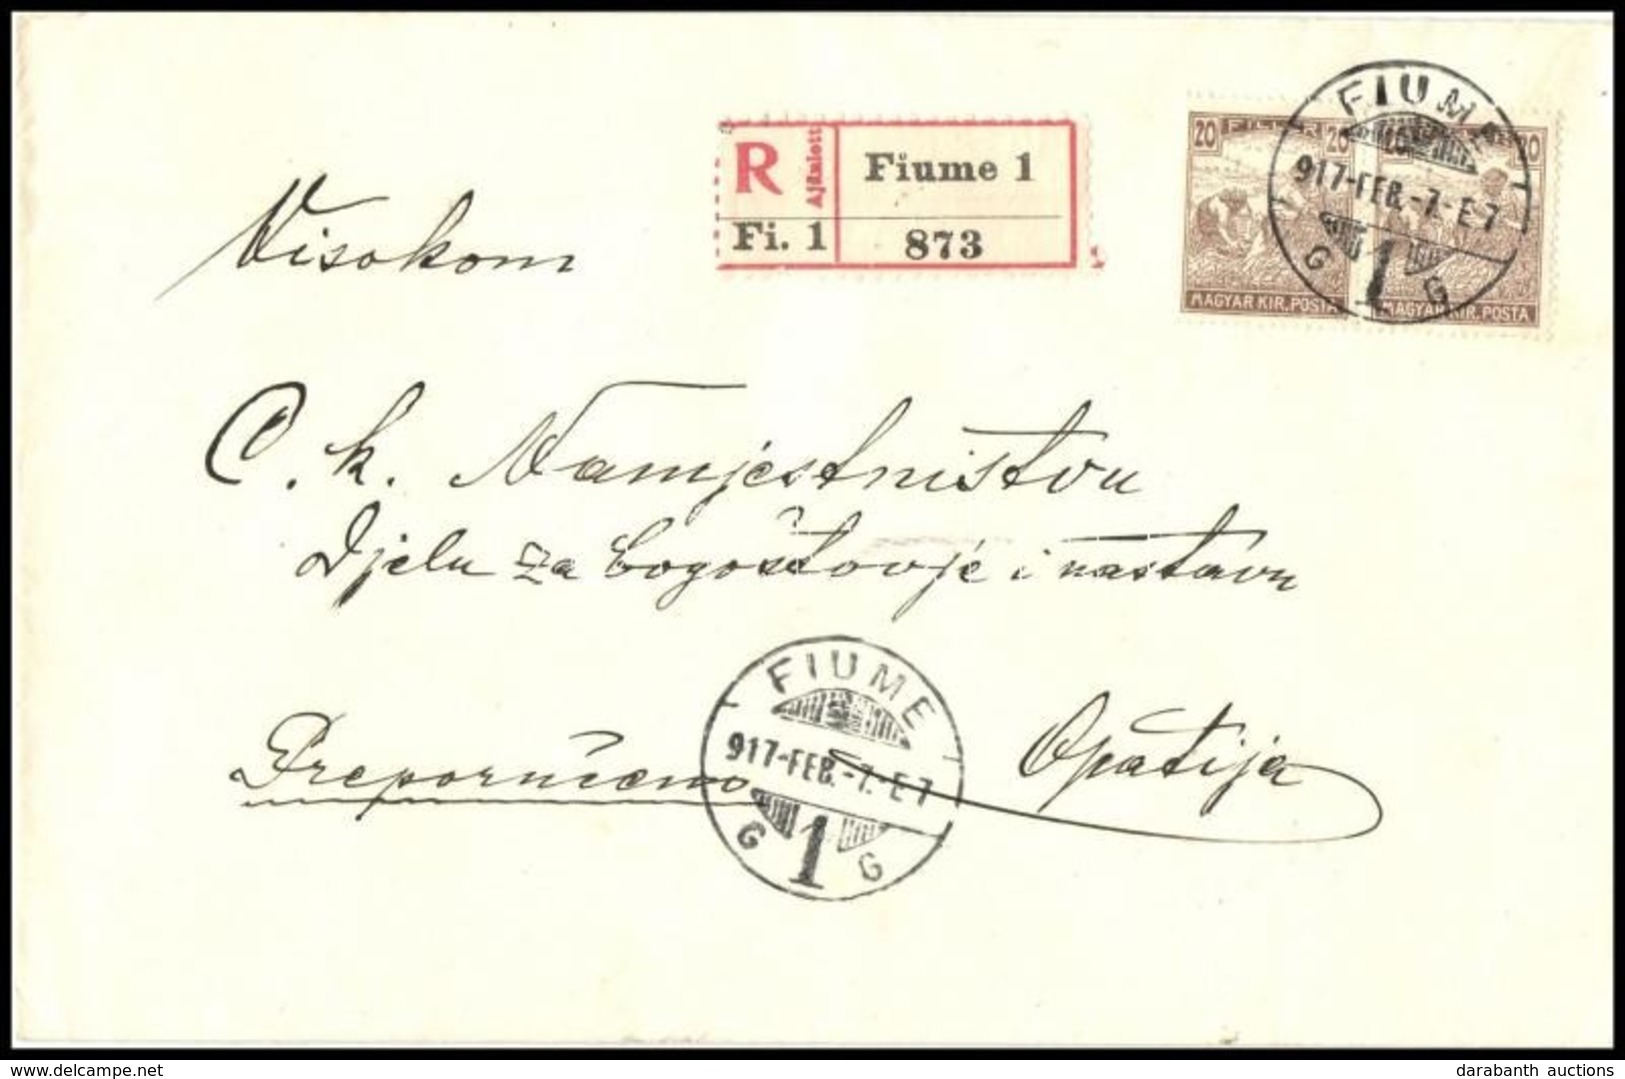 FIUME
917-FEB.-7.-E7
G 1 G
20 FILLÉR 20
MAGYAR KIR. POSTA
20
MAGYAR KIR. POSTA
R Ajánlott
Fiume 1
Fi. 1
873
Visokom
C. k. Namjestništvu
Djelu za bogoštovje i nastavu
Preporučeno
Opatija
FIUME
917-FEB.-7.-E7
G 1 G
www.delcampe.net
darabanth auctions